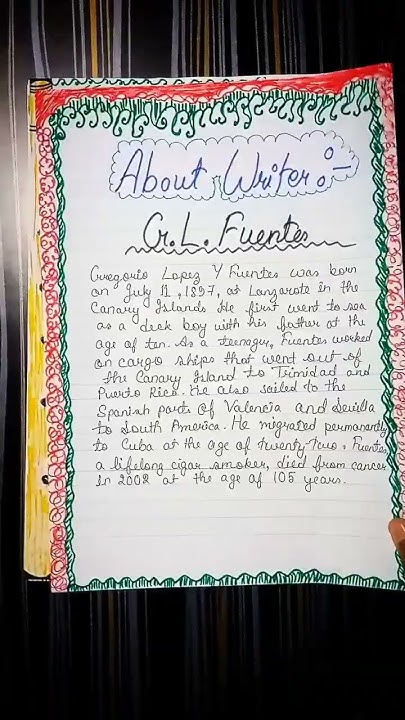 About Writer :-
G.L. Fuentes
Gregorio Lopez Y Fuentes was born
on July 11, 1897, at Lanzarote in the
Canary Islands. He first went to sea
as a deck boy with his father at the
age of ten. As a teenager, Fuentes worked
on cargo ships that went out of
the Canary Island to Trinidad and
Puerto Rico. He also sailed to the
Spanish parts of Valencia and Sevilla
to South America. He migrated permanently
to Cuba at the age of twenty-two. Fuentes,
a lifelong cigar smoker, died from cancer
in 2002 at the age of 105 years.